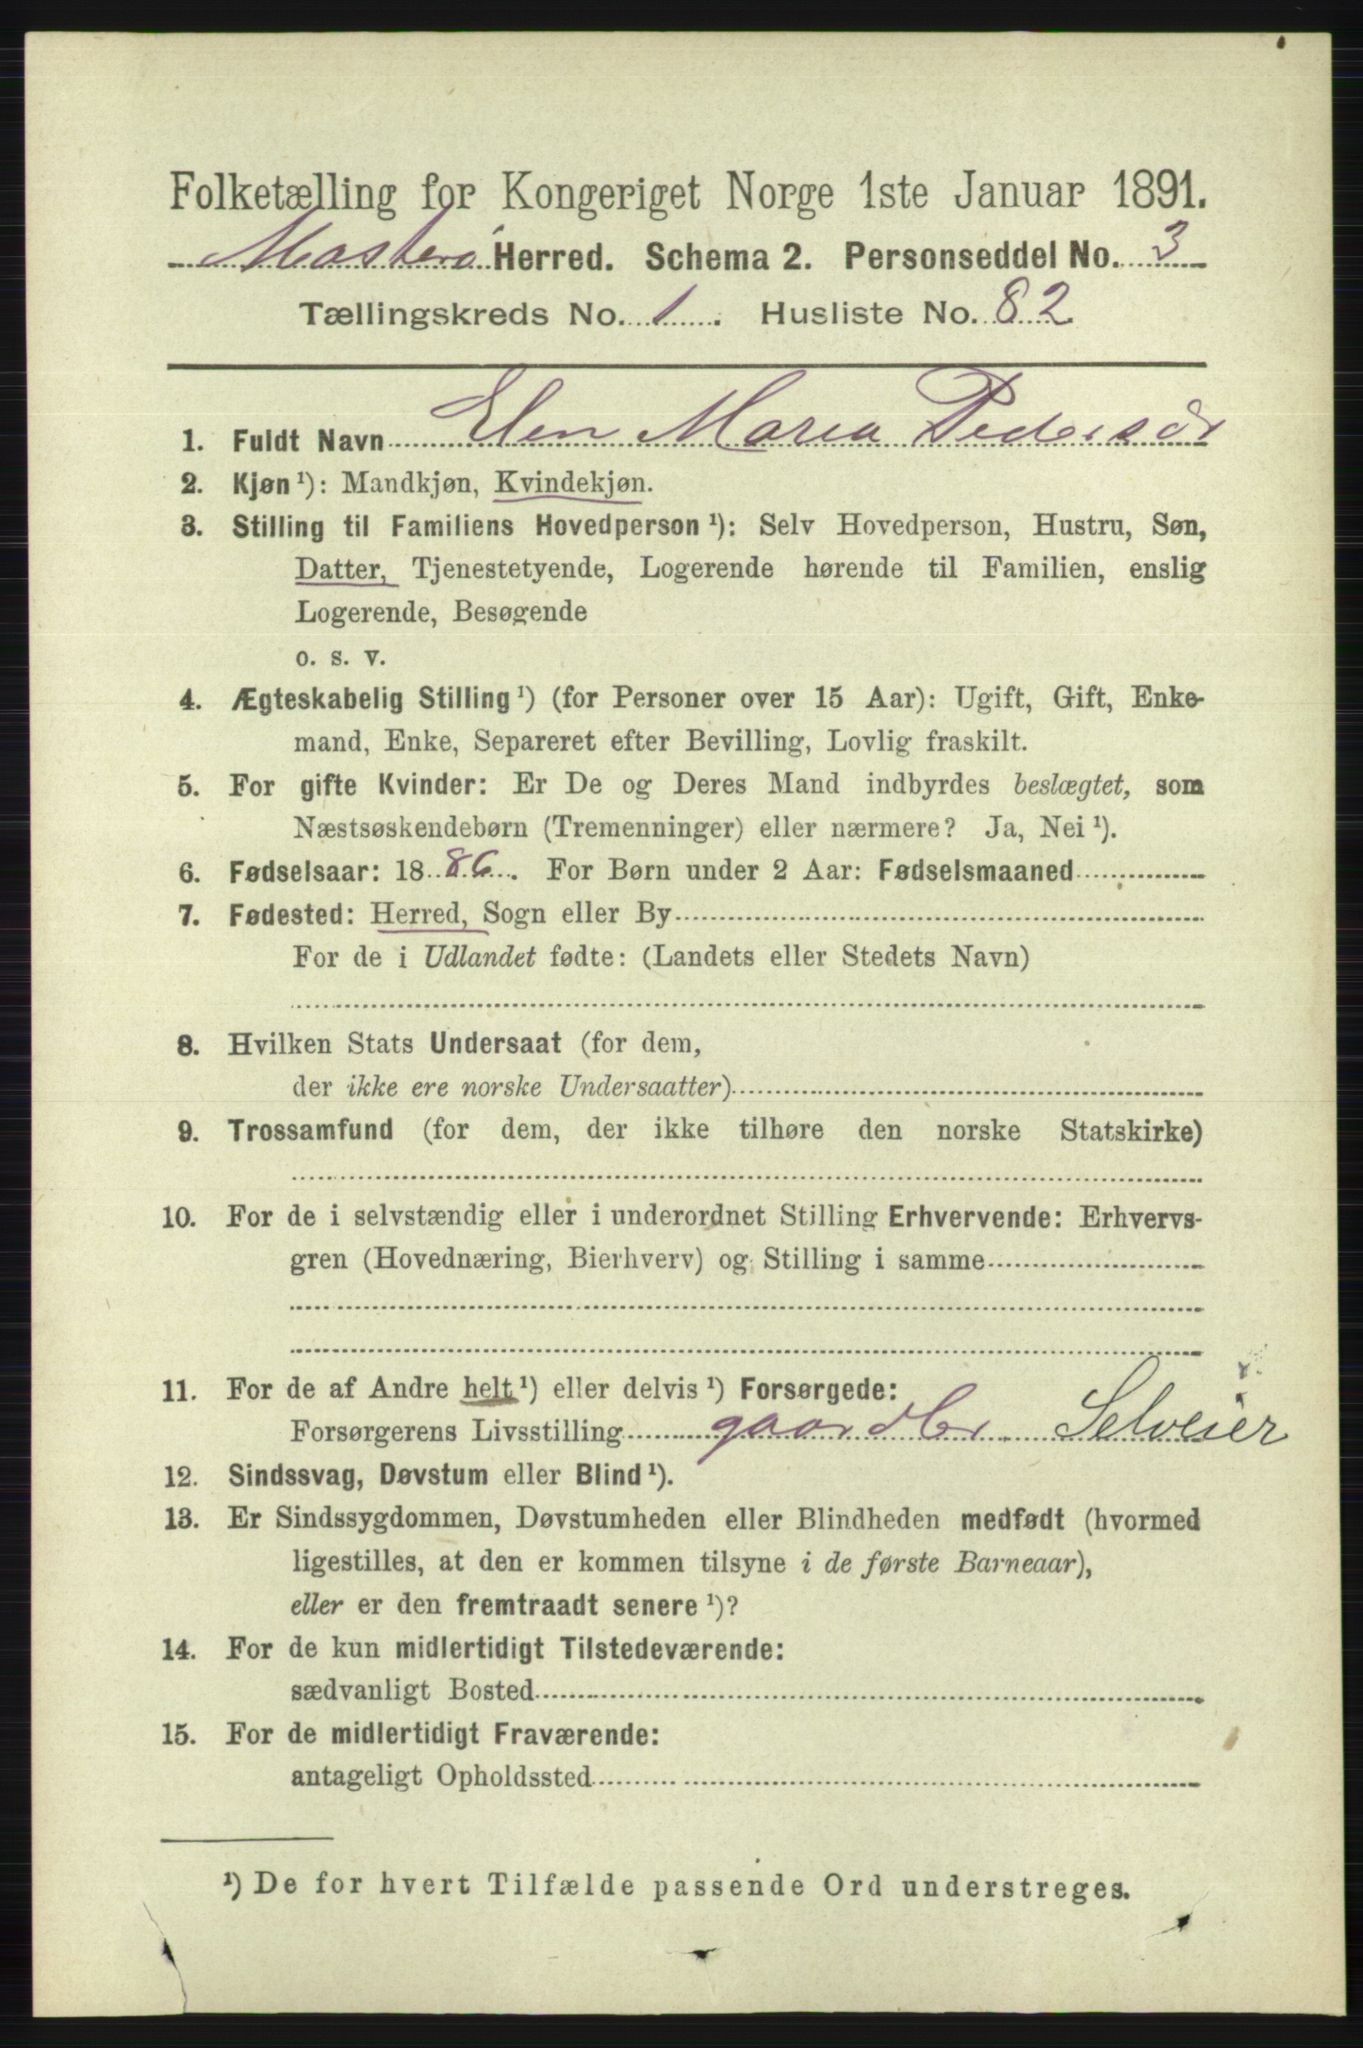 Folketælling for Kongeriget Norge 1ste Januar 1891.
Herred. Schema 2. Personseddel No. 3
Tællingskreds No. 1. Husliste No. 82
1. Fuldt Navn Elen Maria Pedersdr
2. Kjøn ¹): Mandkjøn, Kvindekjøn.
3. Stilling til Familiens Hovedperson ¹): Selv Hovedperson, Hustru, Søn,
Datter, Tjenestetyende, Logerende hørende til Familien, enslig
Logerende, Besøgende
o. s. v.
4. Ægteskabelig Stilling ¹) (for Personer over 15 Aar): Ugift, Gift, Enke-
mand, Enke, Separeret efter Bevilling, Lovlig fraskilt.
5. For gifte Kvinder: Er De og Deres Mand indbyrdes beslægtet, som
Næstsøskendebørn (Tremenninger) eller nærmere? Ja, Nei ¹).
6. Fødselsaar: 1886. For Børn under 2 Aar: Fødselsmaaned
7. Fødested: Herred, Sogn eller By
For de i Udlandet fødte: (Landets eller Stedets Navn)
8. Hvilken Stats Undersaat (for dem,
der ikke ere norske Undersaatter)
9. Trossamfund (for dem, der ikke tilhøre den norske Statskirke)
10. For de i selvstændig eller i underordnet Stilling Erhvervende: Erhvervs-
gren (Hovednæring, Bierhverv) og Stilling i samme
11. For de af Andre helt ¹) eller delvis ¹) Forsørgede:
Forsørgerens Livsstilling gaardbr Selveier
12. Sindssvag, Døvstum eller Blind ¹).
13. Er Sindssygdommen, Døvstumheden eller Blindheden medfødt (hvormed
ligestilles, at den er kommen tilsyne i de første Barneaar),
eller er den fremtraadt senere ¹)?
14. For de kun midlertidigt Tilstedeværende:
sædvanligt Bosted
15. For de midlertidigt Fraværende:
antageligt Opholdssted
¹) De for hvert Tilfælde passende Ord understreges.